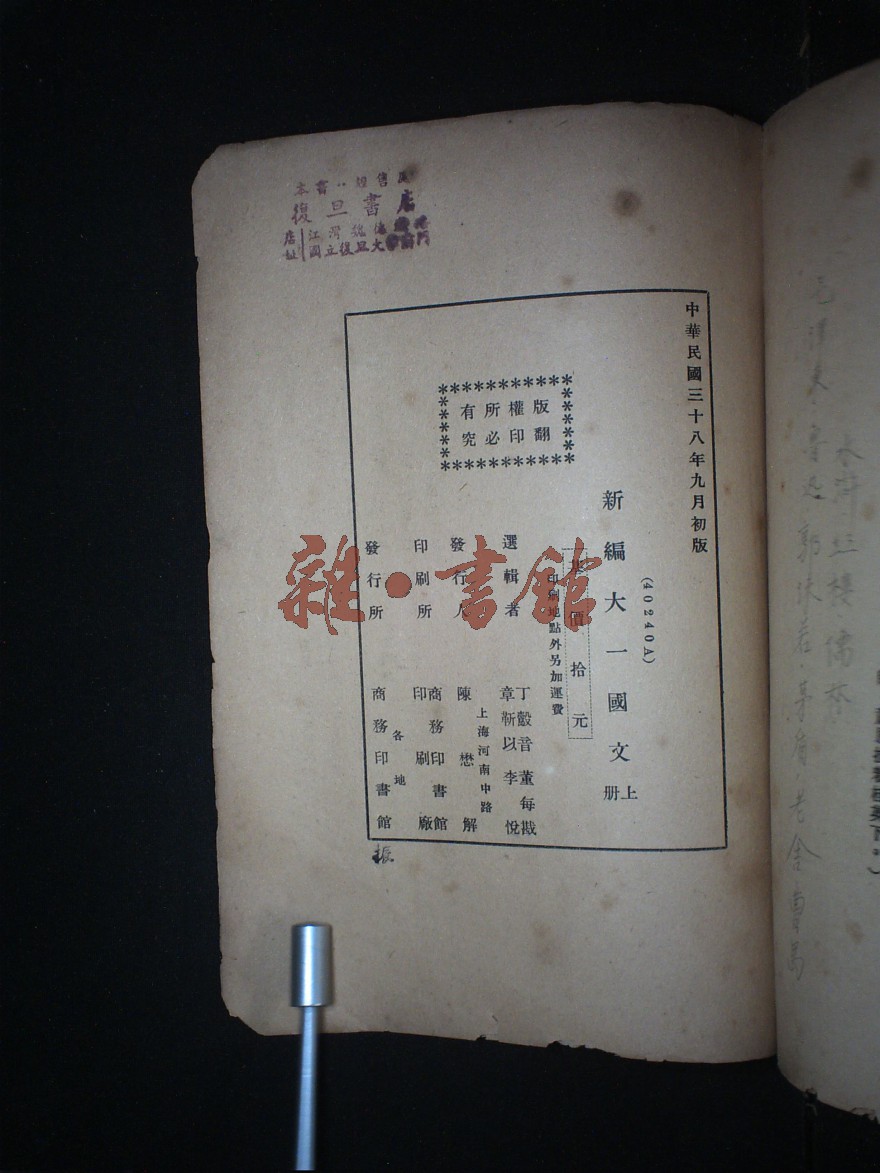 復旦書店
江灣
國立復旦大
店址
中華民國三十八年九月初版
版權所有
翻印必究
(40240A)
新編大一國文 上册
基價拾元
印刷地點外另加運費
選輯者 丁㲄音 董每戡 章靳以 李悅
上海河南中路
發行人 陳懋解
印刷所 商務印書館印刷廠
各地
發行所 商務印書館
振
雜·書館
水滸 紅樓 儒林
毛澤東·魯迅 郭沫若·茅盾 老舍 曹禺